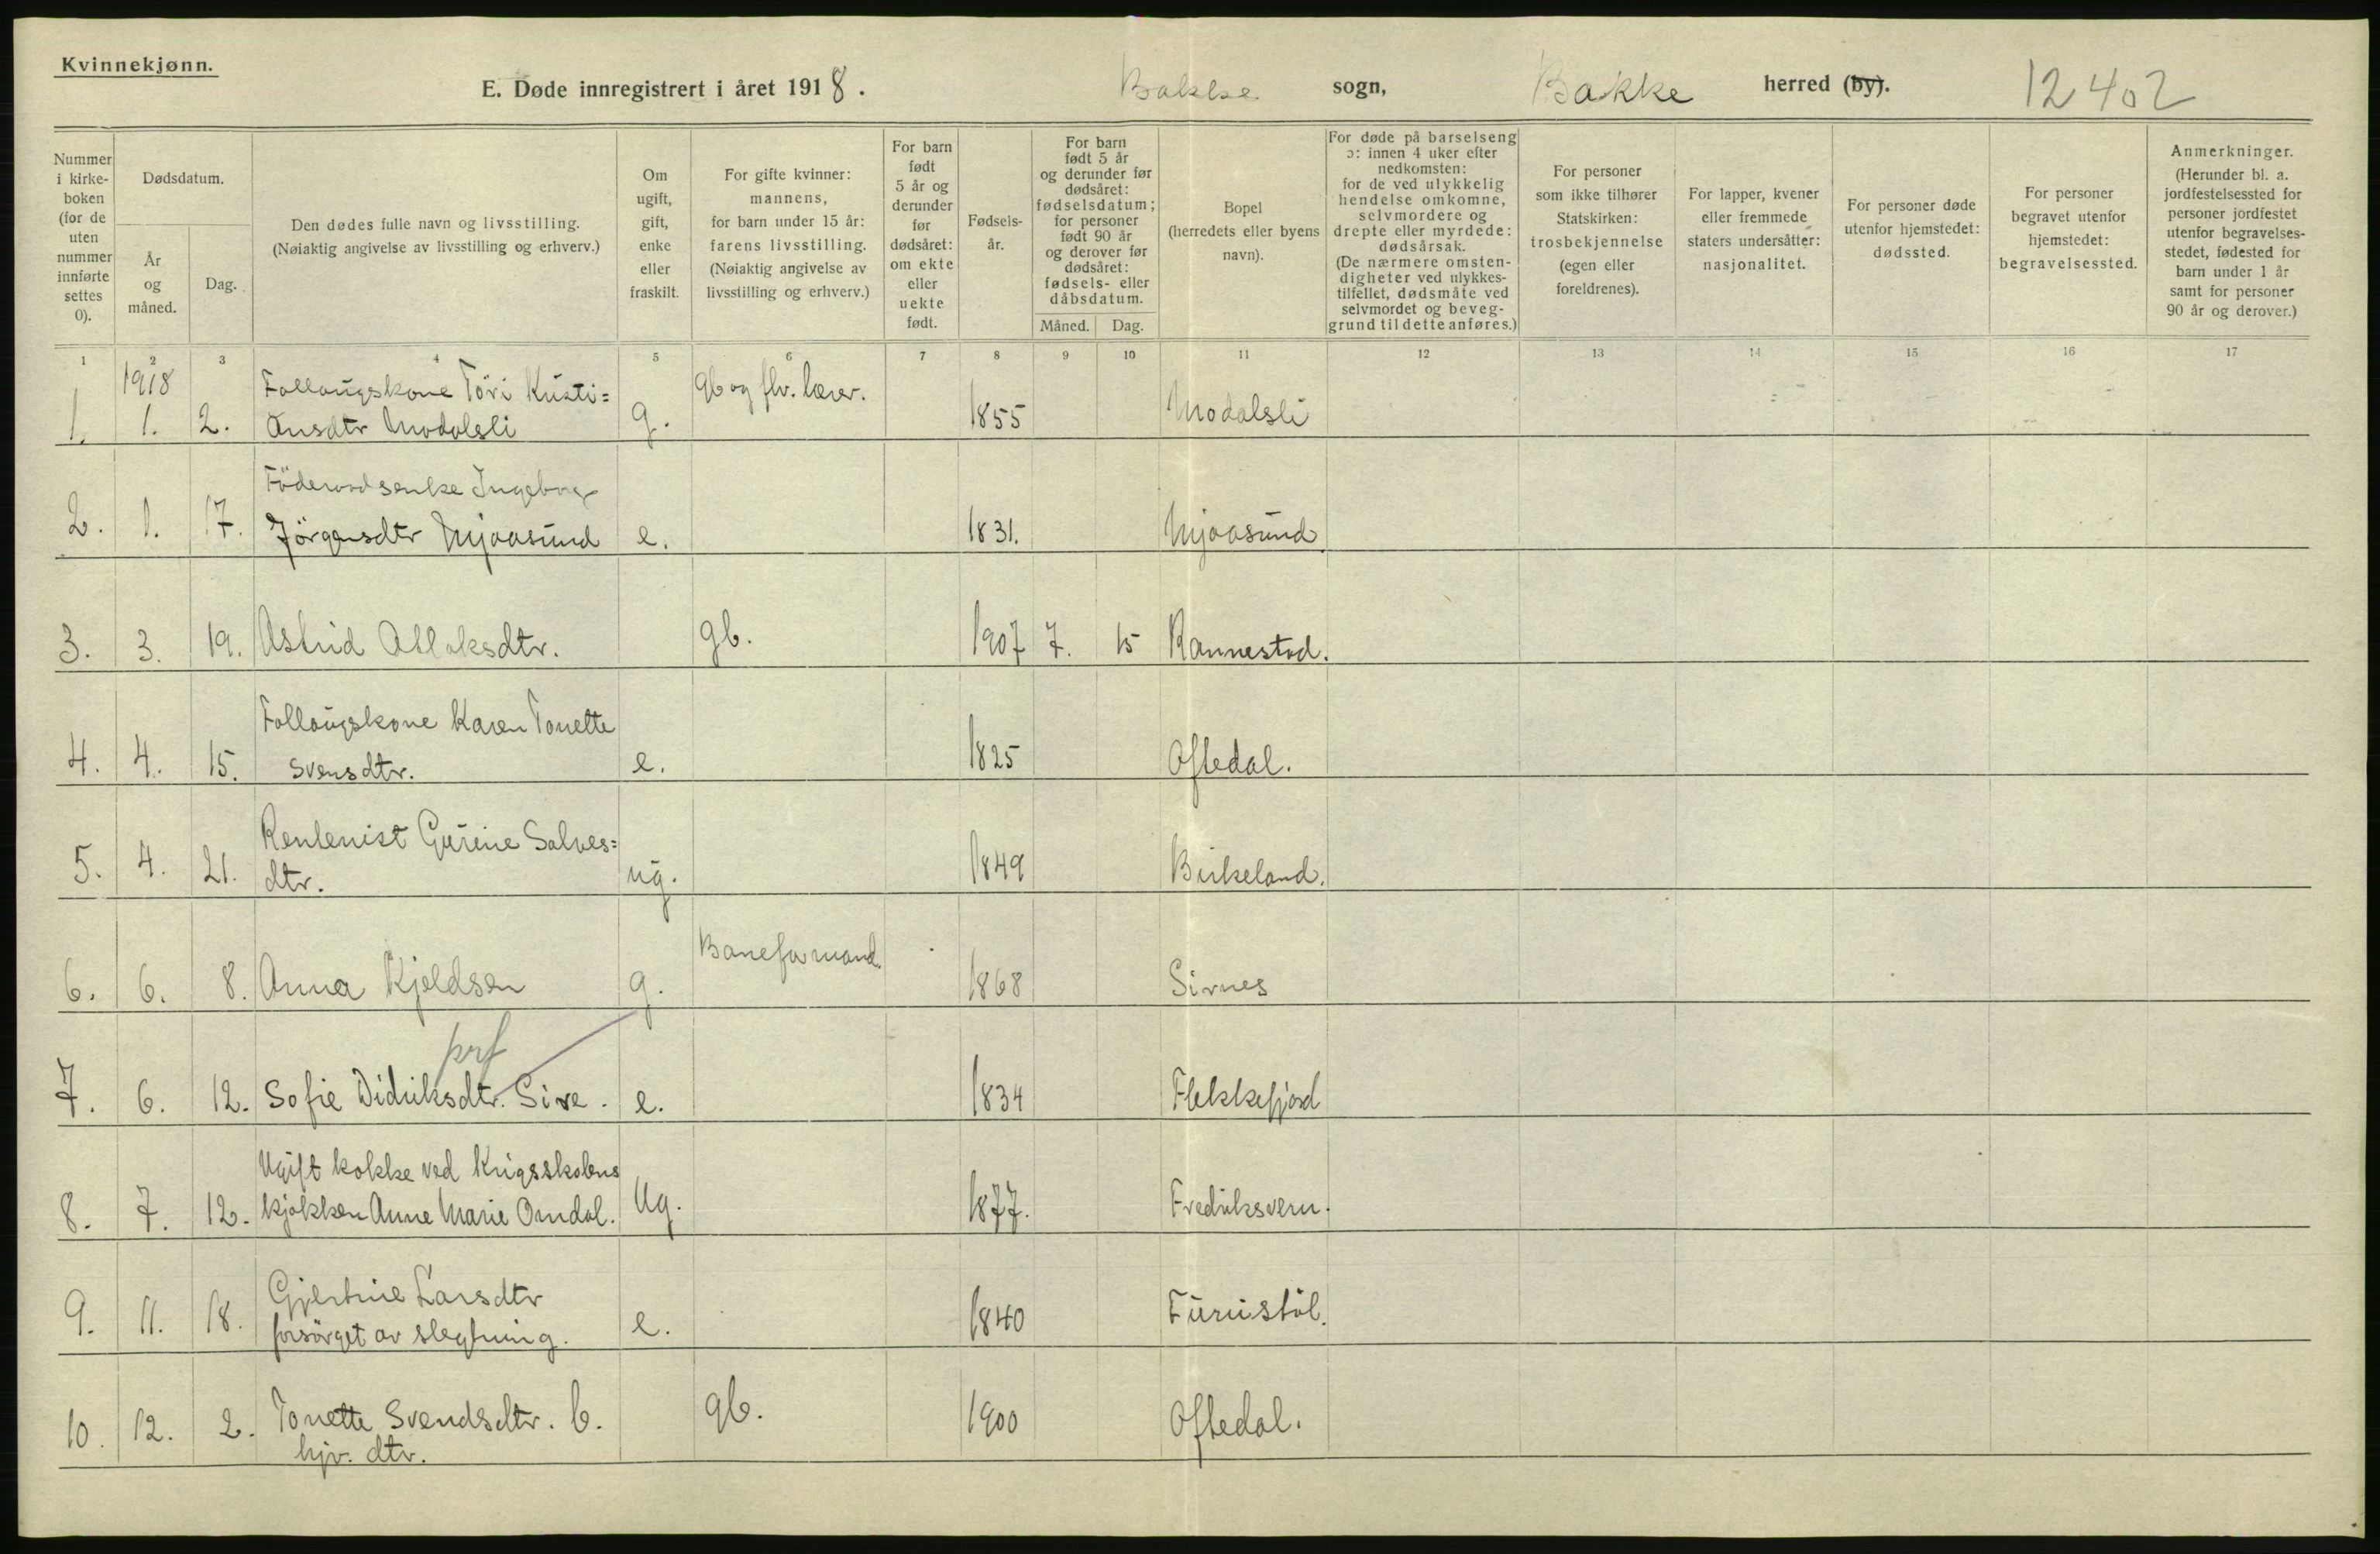 Kvinnekjønn.
E. Døde innregistrert i året 1918. Bakke sogn, Bakke herred (by). 12402
Nummer i kirke-boken (for de uten nummer innførte settes 0).
Dødsdatum.
År og måned.
Dag.
Den dødes fulle navn og livsstilling.
(Nøiaktig angivelse av livsstilling og erhverv.)
Om ugift, gift, enke eller fraskilt.
For gifte kvinner: mannens, for barn under 15 år: farens livsstilling. (Nøiaktig angivelse av livsstilling og erhverv.)
For barn født 5 år og derunder før dødsåret: om ekte eller uekte født.
Fødsels-år.
For barn født 5 år og derunder før dødsåret: fødselsdatum; for personer født 90 år og derover før dødsåret: fødsels- eller dåbsdatum.
Måned. Dag.
Bopel (herredets eller byens navn).
For døde på barselseng ɔ: innen 4 uker efter nedkomsten: for de ved ulykkelig hendelse omkomne, selvmordere og drepte eller myrdede: dødsårsak. (De nærmere omsten-digheter ved ulykkes-tilfellet, dødsmåte ved selvmordet og beveg-grund til dette anføres.)
For personer som ikke tilhører Statskirken: trosbekjennelse (egen eller foreldrenes).
For lapper, kvener eller fremmede staters undersåtter: nasjonalitet.
For personer døde utenfor hjemstedet: dødssted.
For personer begravet utenfor hjemstedet: begravelsessted.
Anmerkninger. (Herunder bl. a. jordfestelsessted for personer jordfestet utenfor begravelses-stedet, fødested for barn under 1 år samt for personer 90 år og derover.)
1 2 3 4 5 6 7 8 9 10 11 12 13 14 15 16 17
1918
Fallougskone Töri Kristi= gb og flv. lærer.
1. 1. 2. Ansdtr Modalsli g. 1855 Modalsli
Föderaadsenke Ingeborg
2. 1. 17. Jörgensdtr Mjaasund e. 1831. Mjaasund.
3. 3. 19. Astrid Atlaksdtr. gb. 1907 7. 15 Rannestad.
Fallougskone Karen Tonette
4. 4. 15. Svensdtr. e. 1825 Oftedal.
Rentenist Gurine Salves=
5. 4. 21. dtr. ug. 1849 Birkeland.
6. 6. 8. Anna Kjeldsen g. Baneformand. 1868 Sirnes
prf
7. 6. 12. Sofie Didriksdtr. Sire. e. 1834 Flekkefjord
Ugift kokke ved Krigsskolens
8. 7. 12. kjøkken Anne Marie Omdal. Ug. 1877. Fredriksvern.
Gjertine Larsdtr
9. 11. 18. forsörget av slegtning. e. 1840 Furustöl.
10. 12. 2. Tonette Svendsdtr. b. gb. 1900 Oftedal.
hjv. dtr.